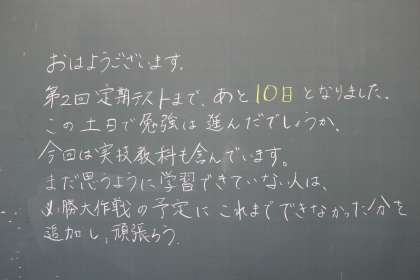 おはようございます.
第2回定期テストまで、あと10日となりました.
この土日で勉強は進んだでしょうか.
今回は実技教科も含んでいます。
まだ思うように学習できていない人は、
必勝大作戦の予定にこれまでできなかった分を
追加し、頑張ろう.